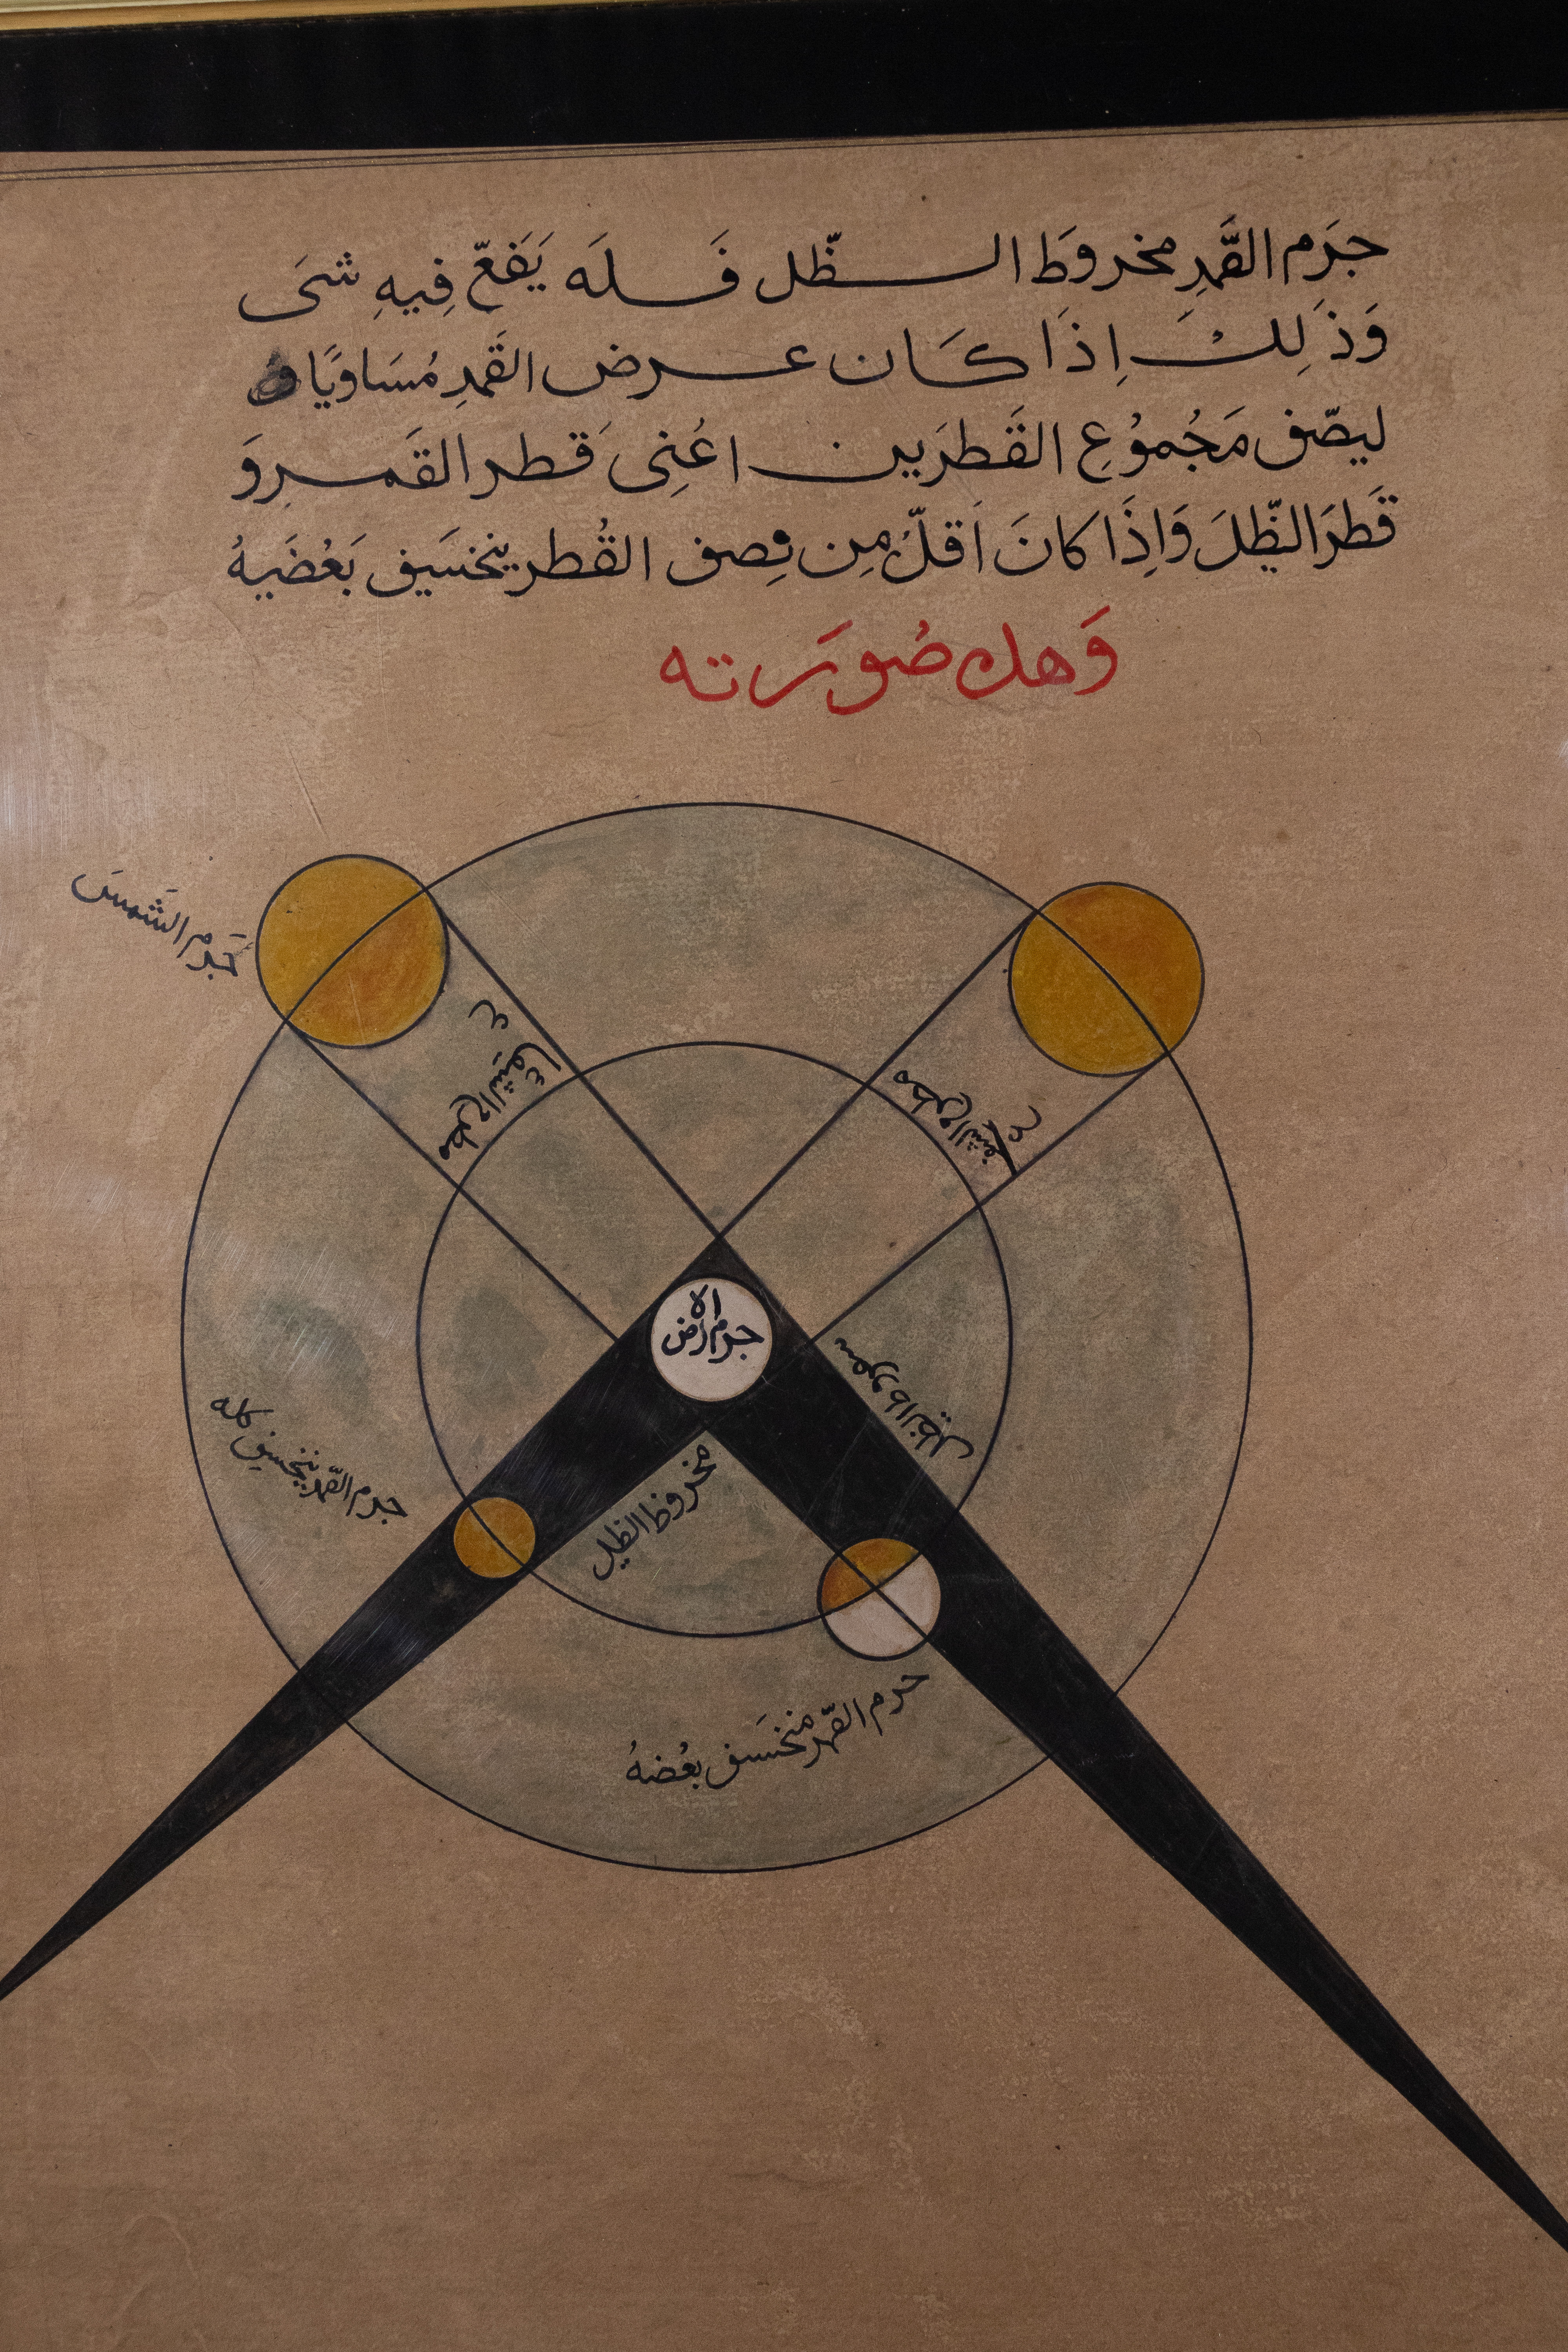 جرَم القَمرِ مخروَط الظّل فَلَه يَقَعّ فِيهِ شىَ
وَذَلِكَ اِذَا كَان عرض القَمرِ مُسَاويًا
ليصّف مَجُموُعِ القَطرَين اعُنِى قَطر القَمرِ وَ
قَطرَ الظّلَ وَاِذَا كانَ اَقلّ مِن نِصف القُطر ينخسَيف بَعُضَيهُ
وَهك صُورَته
جَرم الشَمسَ
مطرح الشعاع
مطرح الشعاع
جرم الارض
جرم القّمر ينخسف كله
مخروظ الظل
الظل
جرم القّمر منخسَف بعُضهُ